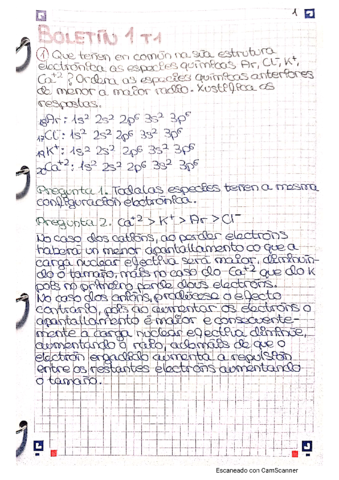 1
BOLETÍN 1 T1
① Que teñen en común na súa estrutura
electrónica as especies químicas Ar, Cl⁻, K⁺,
Ca⁺² ? Ordena as especies químicas anteriores
de menor a maior radio. Xustifica as
respostas.
₁₈Ar: 1s² 2s² 2p⁶ 3s² 3p⁶
₁₇Cl⁻: 1s² 2s² 2p⁶ 3s² 3p⁶
₁₉K⁺: 1s² 2s² 2p⁶ 3s² 3p⁶
₂₀Ca⁺²: 1s² 2s² 2p⁶ 3s² 3p⁶
Pregunta 1. Todalas especies teñen a mesma
configuración electrónica.
Pregunta 2. Ca⁺² > K⁺ > Ar > Cl⁻
No caso dos catións, ao perder electróns
haberá un menor apantallamento co que a
carga nuclear efectiva será maior, diminuín-
do o tamaño, máis no caso do Ca⁺² que do K
pois no primeiro perde dous electróns.
No caso dos anións, prodúcese o efecto
contrario, pois ao aumentar os electróns o
apantallamento é maior e consecuente-
mente a carga nuclear efectiva diminúe,
aumentando o radio, ademáis de que o
electrón engadido aumenta a repulsión
entre os restantes electróns aumentando
o tamaño.
Escaneado con CamScanner